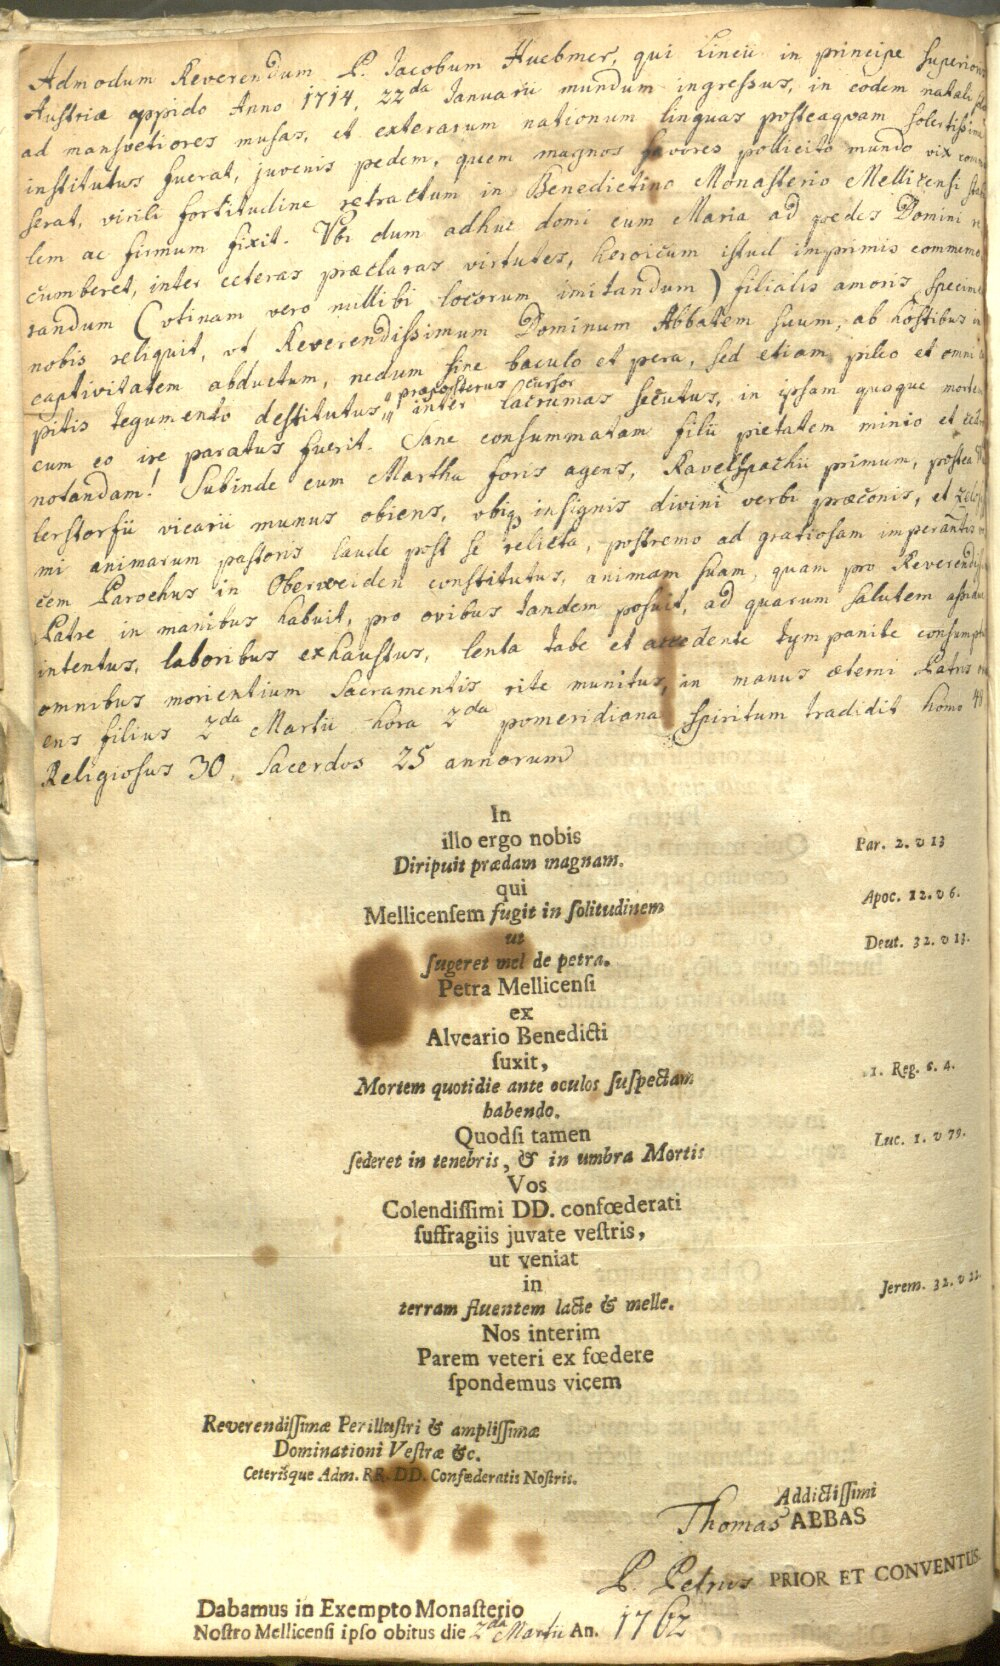 Admodum Reverendum P. Jacobum Huebmer, qui Lincii in principe Superioris
Austriæ oppido Anno 1714, 22da Januarii mundum ingressus, in eodem natali
ad mansvetiores musas, et exterarum nationum linguas posteaqvam solertissime
institutus fuerat, juvenis pedem, quem magnos favores pollicito mundo vix
serat, virili fortitudine retractum in Benedictino Monasterio Mellicensi
lem ac firmum fixit. Vbi dum adhuc domi cum Maria ad pedes Domini
cumberet, inter ceteras præclaras virtutes, heroicum istud imprimis commemo
randum (vtinam vero nullibi locorum imitandum) filialis amoris specimen
nobis reliquit, vt Reverendissimum Dominum Abbatem suum, ab hostibus in
captivitatem abductum, nedum sine baculo et pera, sed etiam pileo et omni
pitis tegumento destitutus, præposterus cursor inter lacrumas secutus, in ipsam quoque mortem
cum eo ire paratus fuerit. Sane consummatam filii pietatem minio et
notandam! Subinde cum Martha foris agens, Ravelspachii primum, postea
lerstorfii vicarii munus obiens, vbiq insignis divini verbi præconis, et
mi animarum pastoris laude post se relicta, postremo ad gratiosam imperantis
cem Parochus in Oberweiden constitutus, animam suam, quam pro Reverendiss
Patre in manibus habuit, pro ovibus tandem posuit, ad quarum salutem
intentus, laboribus exhaustus, lenta tabe et accedente tympanite consumptus
omnibus morientium Sacramentis rite munitus, in manus æterni Patris
ens filius 2da Martii hora 2da pomeridiana Spiritum tradidit homo 48
Religiosus 30, Sacerdos 25 annorum
In
illo ergo nobis
Diripuit prædam magnam. Par. 2. v 13
qui
Mellicensem fugit in solitudinem Apoc. 12. v 6.
ut
sugeret mel de petra. Deut. 32. v 13.
Petra Mellicensi
ex
Alveario Benedicti
suxit,
Mortem quotidie ante oculos suspectam 1. Reg. c. 4.
habendo.
Quodsi tamen
sederet in tenebris, & in umbra Mortis Luc. 1. v 79.
Vos
Colendissimi DD. confœderati
suffragiis juvate vestris,
ut veniat
in
terram fluentem lacte & melle. Jerem. 32. v 22.
Nos interim
Parem veteri ex fœdere
spondemus vicem
Reverendissimæ Perillustri & amplissimæ
Dominationi Vestræ &c.
Ceterisque Adm. RR. DD. Confœderatis Nostris.
Addictissimi
Thomas ABBAS
P. Petrus PRIOR ET CONVENTUS.
Dabamus in Exempto Monasterio
Nostro Mellicensi ipso obitus die 2da Martii An. 1762